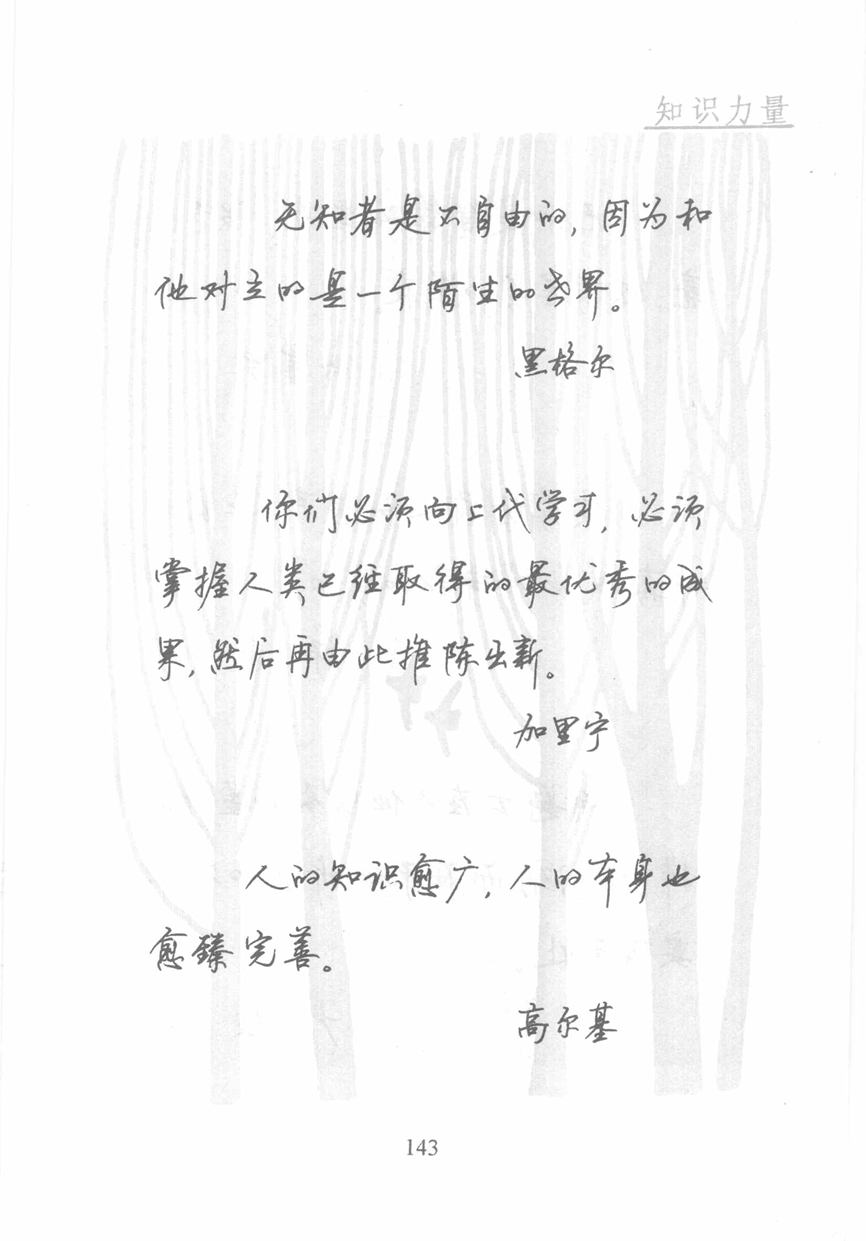 知识力量
无知者是不自由的,因为和
他对立的是一个陌生的世界。
黑格尔
你们必须向上代学习,必须
掌握人类已经取得的最优秀的成
果,然后再由此推陈出新。
加里宁
人的知识愈广,人的本身也
愈臻完善。
高尔基
143